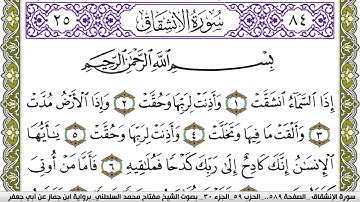 ٨٤ سُورَةُ الِانْشِقَاقِ ٢٥
بِسْمِ اللَّهِ الرَّحْمَٰنِ الرَّحِيمِ
إِذَا السَّمَآءُ انشَقَّتْ ١ وَأَذِنَتْ لِرَبِّهَا وَحُقَّتْ ٢ وَإِذَا الْأَرْضُ مُدَّتْ
٣ وَأَلْقَتْ مَا فِيهَا وَتَخَلَّتْ ٤ وَأَذِنَتْ لِرَبِّهَا وَحُقَّتْ ٥ يَٰٓأَيُّهَا
الْإِنسَٰنُ إِنَّكَ كَادِحٌ إِلَىٰ رَبِّكَ كَدْحًا فَمُلَٰقِيهِ ٦ فَأَمَّا مَنْ أُوتِيَ
سورة الإنشقاق.. الصفحة ٥٨٩.. الحزب ٥٩ الجزء ٣٠.. بصوت الشيخ مفتاح محمد السلطني.. برواية ابن جماز عن أبي جعفر